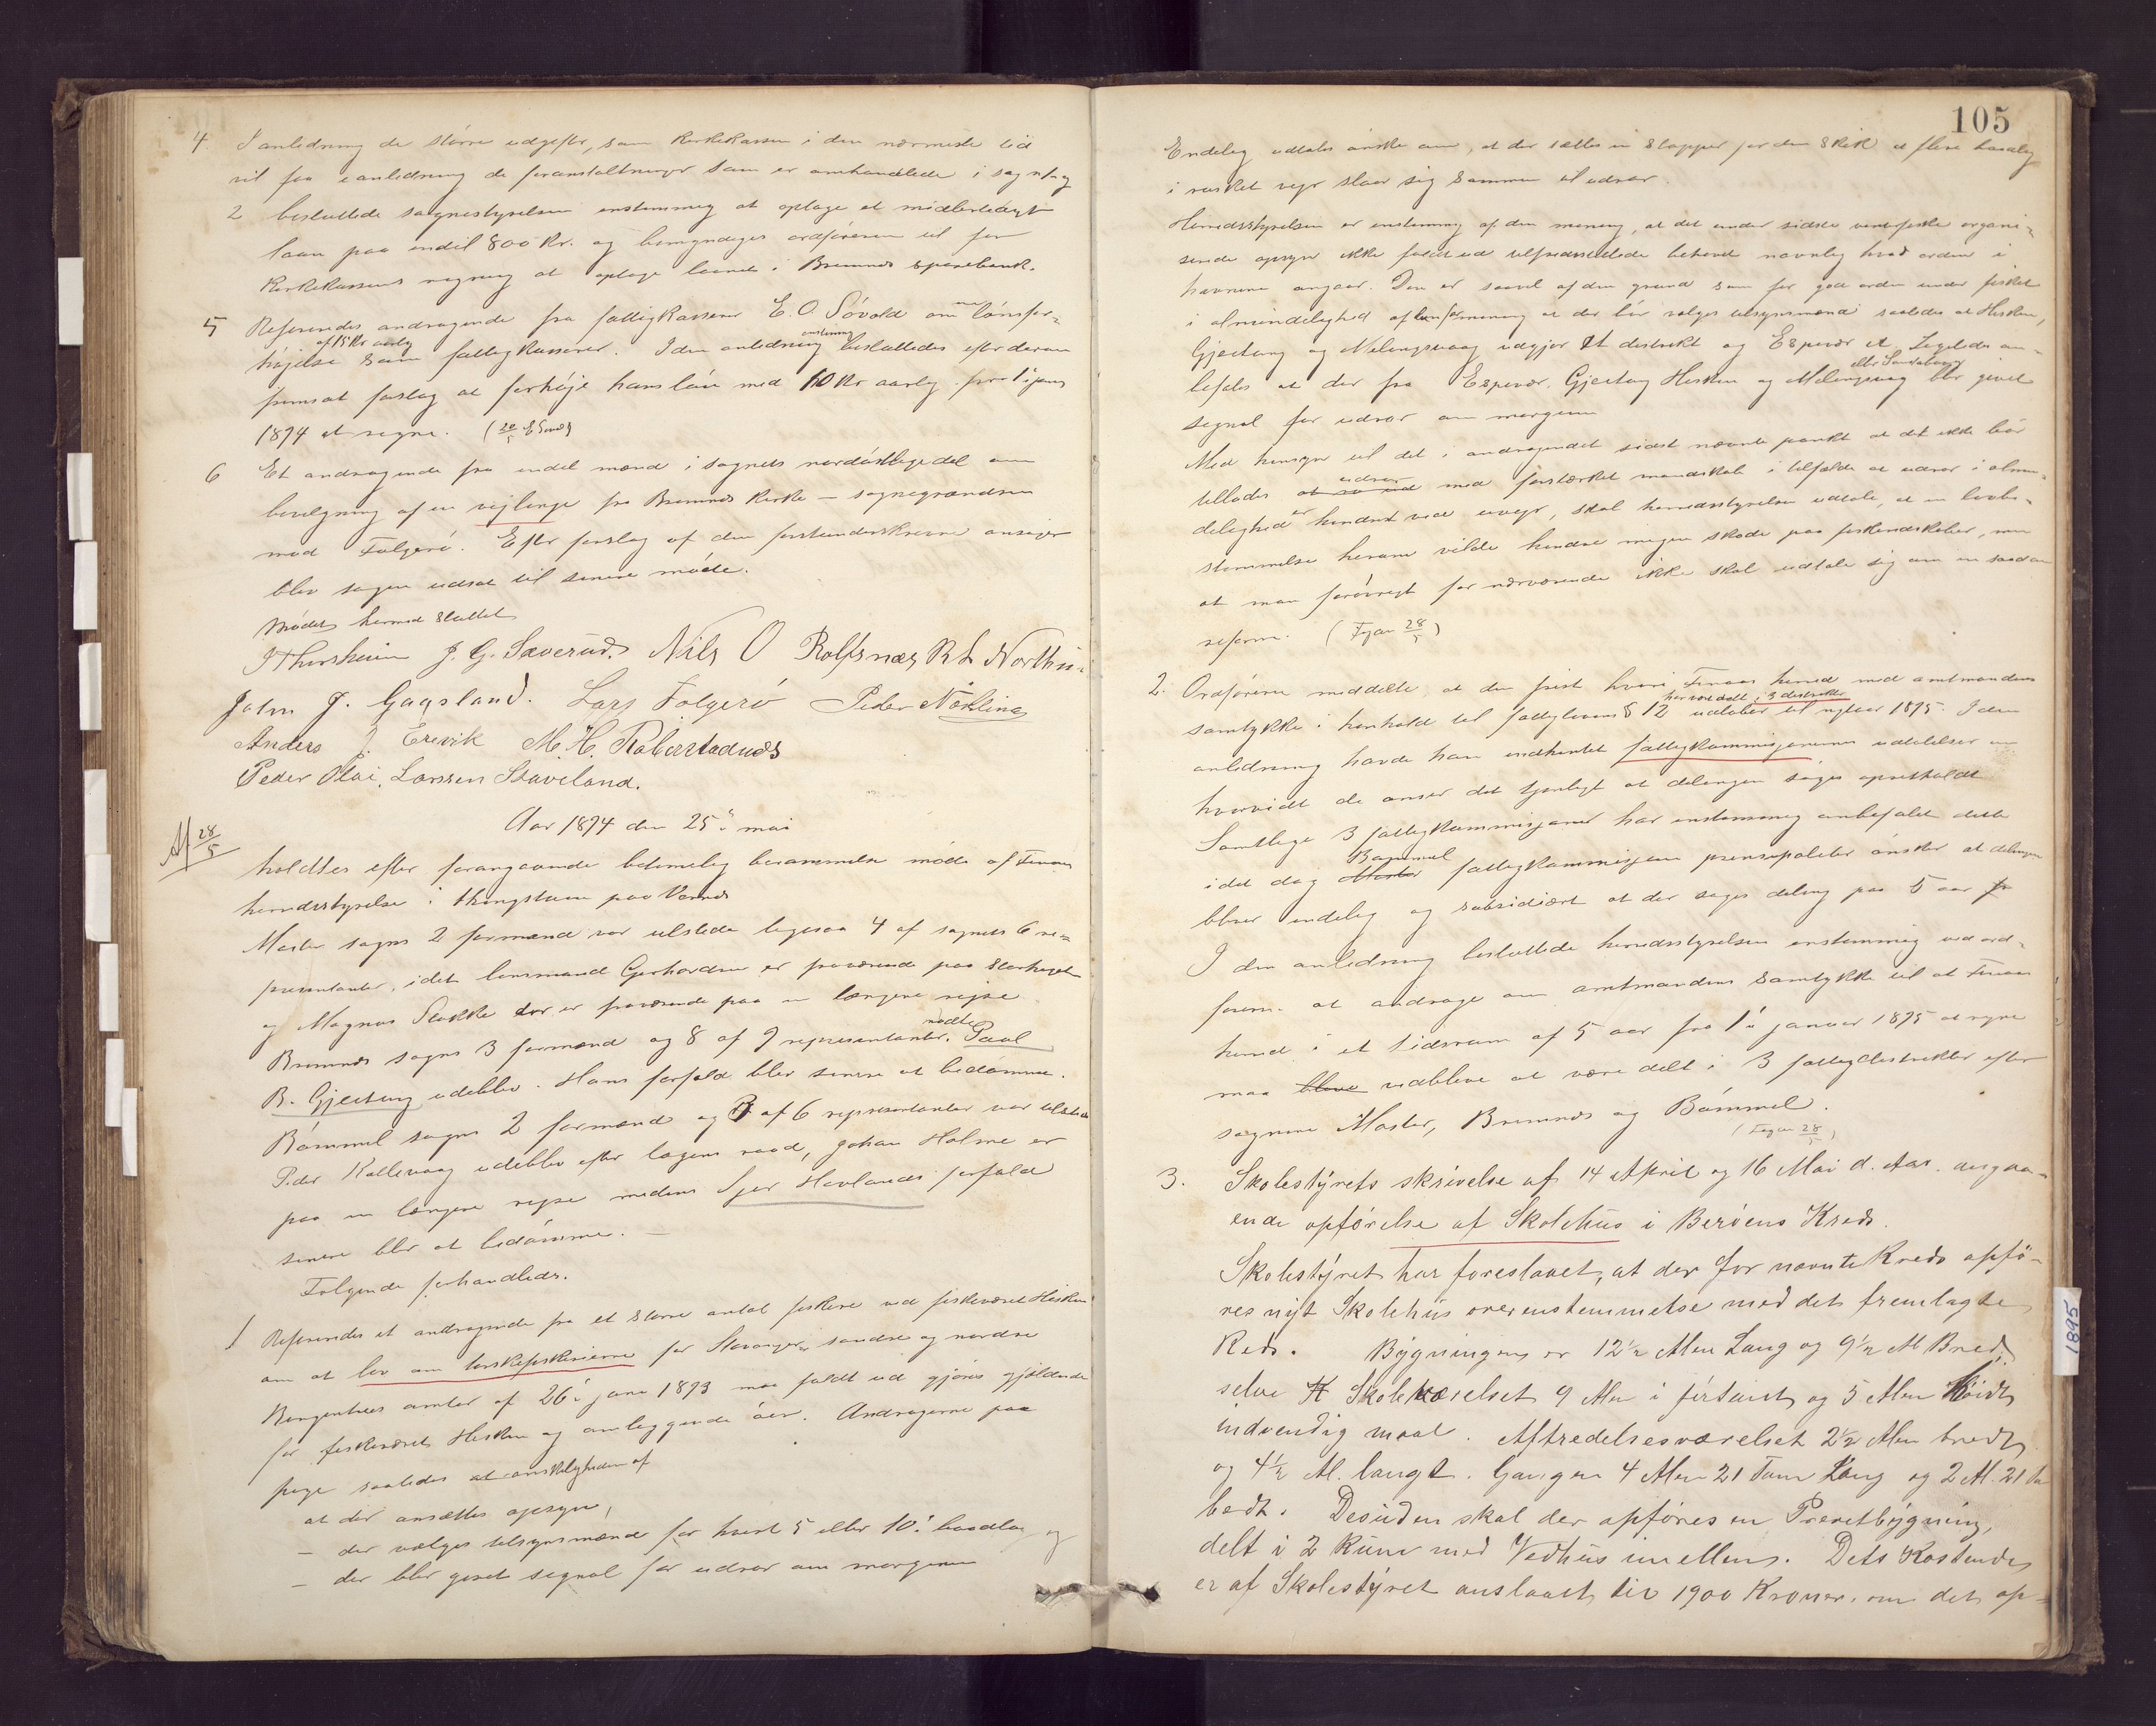 4. I anledning de større udgifter, som Kirkekassen i den nærmeste tid
vil faa i anledning de foranstaltninger som er omhandlede i sag 1 og
2 besluttede sognestyrelsen enstemmig at optage et midlertidigt
laan paa indtil 800 Kr. og bemyndiges ordføreren til for
Kirkekassens regning at optage laanet i Bremnes sparebank.
5 Refereredes andragende fra fattigkasserer E. O. Søvold om lønsfor-
højelse af 15 Kr aarlig som fattigkasserer. I den anledning besluttedes enstemmig efter derom
fremsat forslag at forhøje hans løn med 10 Kr aarlig fra 1ste janr
1894 at regne. (20/5 E Søvold)
6 Et andragende fra endel mænd i sognets nordøstlige del om
bevilgning af en vejlænge fra Bremnes Kirke – sognegrændsen
mod Folgerø. Efter forslag af den førstunderskrevne ansøger
blev sagen udsat til senere møde.
Mødet hermed sluttet
J Thorsheim J. G. Sæverud. Nils O Rolfsnes R L Northun
John J. Gaasland. Lars Folgerø Peder Nökling
Anders J. Erevik M. H. Robarstadnes
Peder Olai Larssen Staveland.
Aar 1894 den 25de mai
Af 28/5
holdtes efter forangaaende betimelig berammelse møde af Finaas
herredsstyrelse i thingstuen paa Vornes
Moster sogns 2 formænd var tilstede ligesaa 4 af sognets 6 re-
præsentanter, idet lensmand Gerhardsen er fraværende paa Storthinget
og Magnus Stokke der er fraværende paa en længere rejse
Bremnes sogns 3 formænd og 8 af 9 repræsentanter mødte. Paul
B. Gjeitung udeblev. Hans forfald blev senere at bedømme.
Bømmel sogns 2 formænd og 3 af 6 repræsentanter var tilstede
Peder Kallevaag udeblev efter lægens raad, Johan Holme er
paa en længere rejse medens Sjur Hovlands forfald
senere blir at bedømme. –
Følgende forhandledes.
1 Refereredes et andragende fra et større antal fiskere ved fiskeværet Hisken
om at lov om torskefiskerierne for Stavanger, søndre og nordre
Bergenhus amter af 26de juni 1893 maa faldt ud gjøres gjældende
for fiskeværet Hisken og omliggende øer. Andragerne paa
pege saaledes at ønskeligheden af
at der ansættes opsyn,
– der vælges tilsynsmænd for hvert 5 eller 10de baadlag og
– der blir givet signal for udror om morgenen
105
Endelig udtales ønske om, at der sættes en stopper for den skik at flere baadlag
i rusket vejr slaar sig sammen til udror.
Herredsstyrelsen er enstemmig af den mening, at det under sidste vinterfiske organi-
serede opsyn ikke faldt ud tilfredsstillede behovet navnlig hvad orden i
havnene angaar. Den er saavel af den grund som for god orden under fisket
i almindelighed af den formening at der bør vælges tilsynsmænd saaledes at Hisken,
Gjeitung og Melingsvaag udgjør Et distrikt og Espevær et. Ligeledes an-
befales at der fra Espevær, Gjeitung Hisken og Melingsvaag eller Sandvaag blir givet
signal for udror om morgenen
Med hensyn til det i andragendet sidst nævnte punkt at det ikke bør
tillades udror med forstærket mandskab i tilfælde at udror i almin-
delighed er hindret ved uvejr, skal herredsstyrelsen udtale, at en lovbe-
stemmelse herom vilde hindre megen skade paa fiskeredskaber, men
at man forøvrigt for nærværende ikke skal udtale sig om en saadan
reform. (Fyen 28/5)
2. Ordføreren meddelte, at den frist hvori Finaas herred med amtmandens
samtykke i henhold til fattiglovens § 12 har været delt i 3 distrikter udløber til nytaar 1895. I den
anledning havde han indhentet fattigkommissionernes udtalelser om
hvorvidt de anser det tjenligt at delingen søges opretholdt
Samtlige 3 fattigkommissjoner har enstemmig anbefalet dette
idet dog Bømmel fattigkommissjon prinsipaliter ønsker at delingen
bliver endelig og subsidiært at der søges deling paa 5 aar
I den anledning besluttede herredsstyrelsen enstemmig ved ord-
føren at andrage om amtmandens samtykke til at Finaas
herred i et tidsrum af 5 aar fra 1ste januar 1895 at regne
maa vedblive at være delt i 3 fattigdistrikter efter
sognene Moster, Bremnes og Bømmel.
(Fyen 28/5)
3. Skolestyrets skrivelse af 14 April og 16 Mai d. Aar. angaa-
ende opførelse af Skolehus i Berøens Kreds.
Skolestyret har foreslaaet, at der for nævnte Kreds opfø-
res nyt Skolehus overensstemmelse med det fremlagte
Rids. Bygningen er 12½ Alen Lang og 9½ Al Bred,
selve Skoleværelset 9 Alen i firkant og 5 Alen Høidt
indvendig maal. Aftrædelsesværelset 2½ Alen bredt
og 4½ Al. langt. Gangen 4 Alen 21 Tom Lang og 2 Al. 21 To
bredt. Desuden skal der opføres en Privetbygning,
delt i 2 Rum med Vedhus imellem. Dets Kostende
er af Skolestyret anslaaet til 1900 Kroner, om det op-
1895